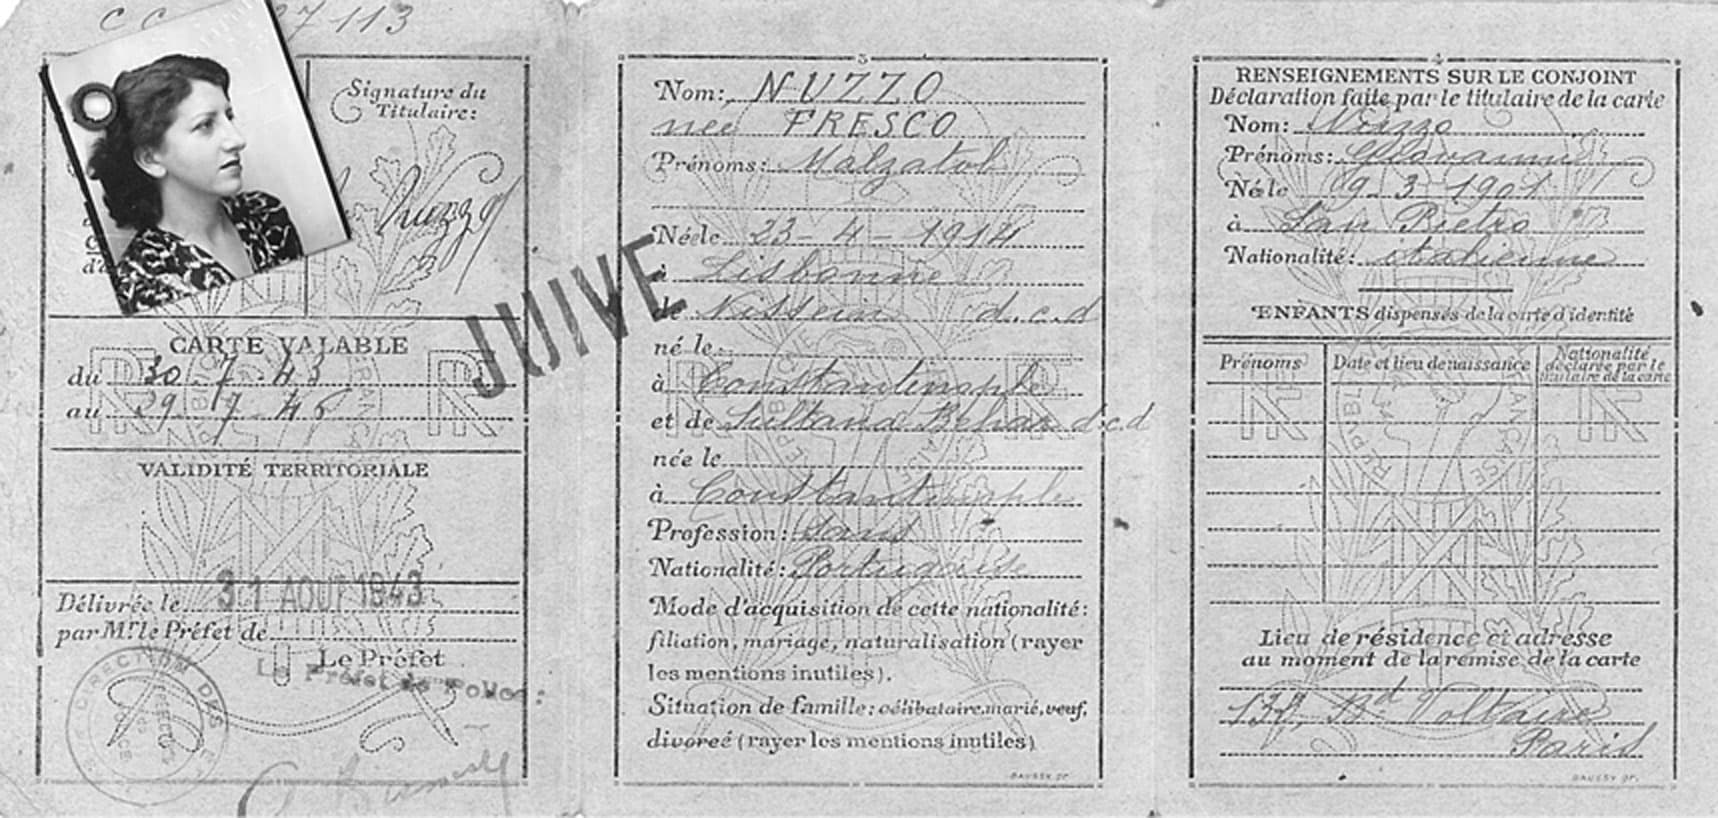 27113
Signature du
Titulaire:
Nuzzo
CARTE VALABLE
du 30-7-43
au 29-7-46
VALIDITÉ TERRITORIALE
Délivrée le 31 AOUT 1943
par Mr. le Préfet de
Le Préfet
Le Préfet de Police:
DIRECTION DES
JUIVE
3
Nom: NUZZO
née FRESCO
Prénoms: Malzatob
Né le 23-4-1914
à Lisbonne
de Nissein d.c.d
né le:
à Constantinople
et de Sultana Behar d.c.d
née le
à Constantinople
Profession: Sans
Nationalité: Portugaise
Mode d'acquisition de cette nationalité:
filiation, mariage, naturalisation (rayer
les mentions inutiles).
Situation de famille: célibataire, marié, veuf,
divorcé (rayer les mentions inutiles)
4
RENSEIGNEMENTS SUR LE CONJOINT
Déclaration faite par le titulaire de la carte
Nom: Nuzzo
Prénoms: Giovanni
Né le 19-3-1901
à San Pietro
Nationalité: italienne
ENFANTS dispensés de la carte d'identité
Prénoms Date et lieu de naissance Nationalité
déclarée par le
titulaire de la carte
Lieu de résidence et adresse
au moment de la remise de la carte
Bd Voltaire
Paris